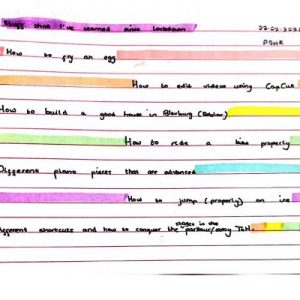 Stuff that I've learned since lockdown
22.02.2021
PSHE
How to fry an egg
How to edit videos using CapCut
How to build a good house in Bloxburg (Roblox)
How to ride a bike properly
Different piano pieces that are advanced
How to jump (properly) on ice
stages in the
Different shortcuts and how to conquer the parkour/easy ToH.